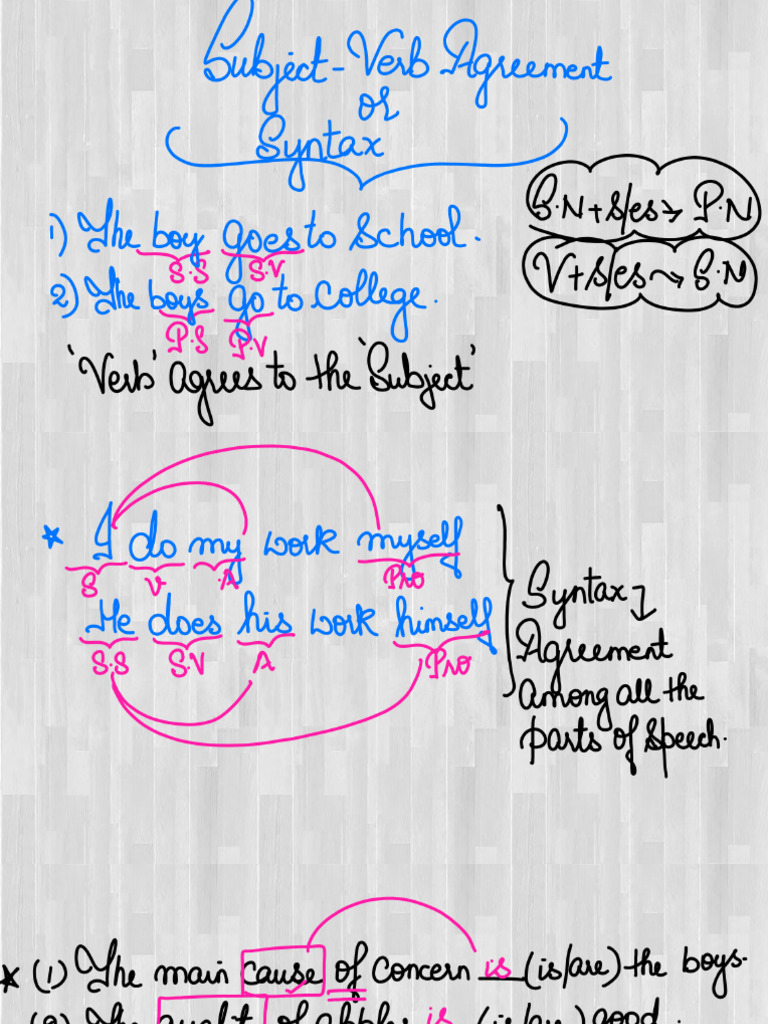 Subject-Verb Agreement
or
Syntax
S.N+s/es→ P.N
V+s/es→ S.N
1) The boy goes to School.
S.S S.V
2) The boys go to College.
P.S P.V
'Verb' agrees to the 'Subject'
* I do my work myself
S V A Pro
He does his work himself
S.S S.V A Pro
Syntax →
Agreement
among all the
parts of Speech.
* (1) The main cause of concern is (is/are) the boys.
of apples is (is/are) good.